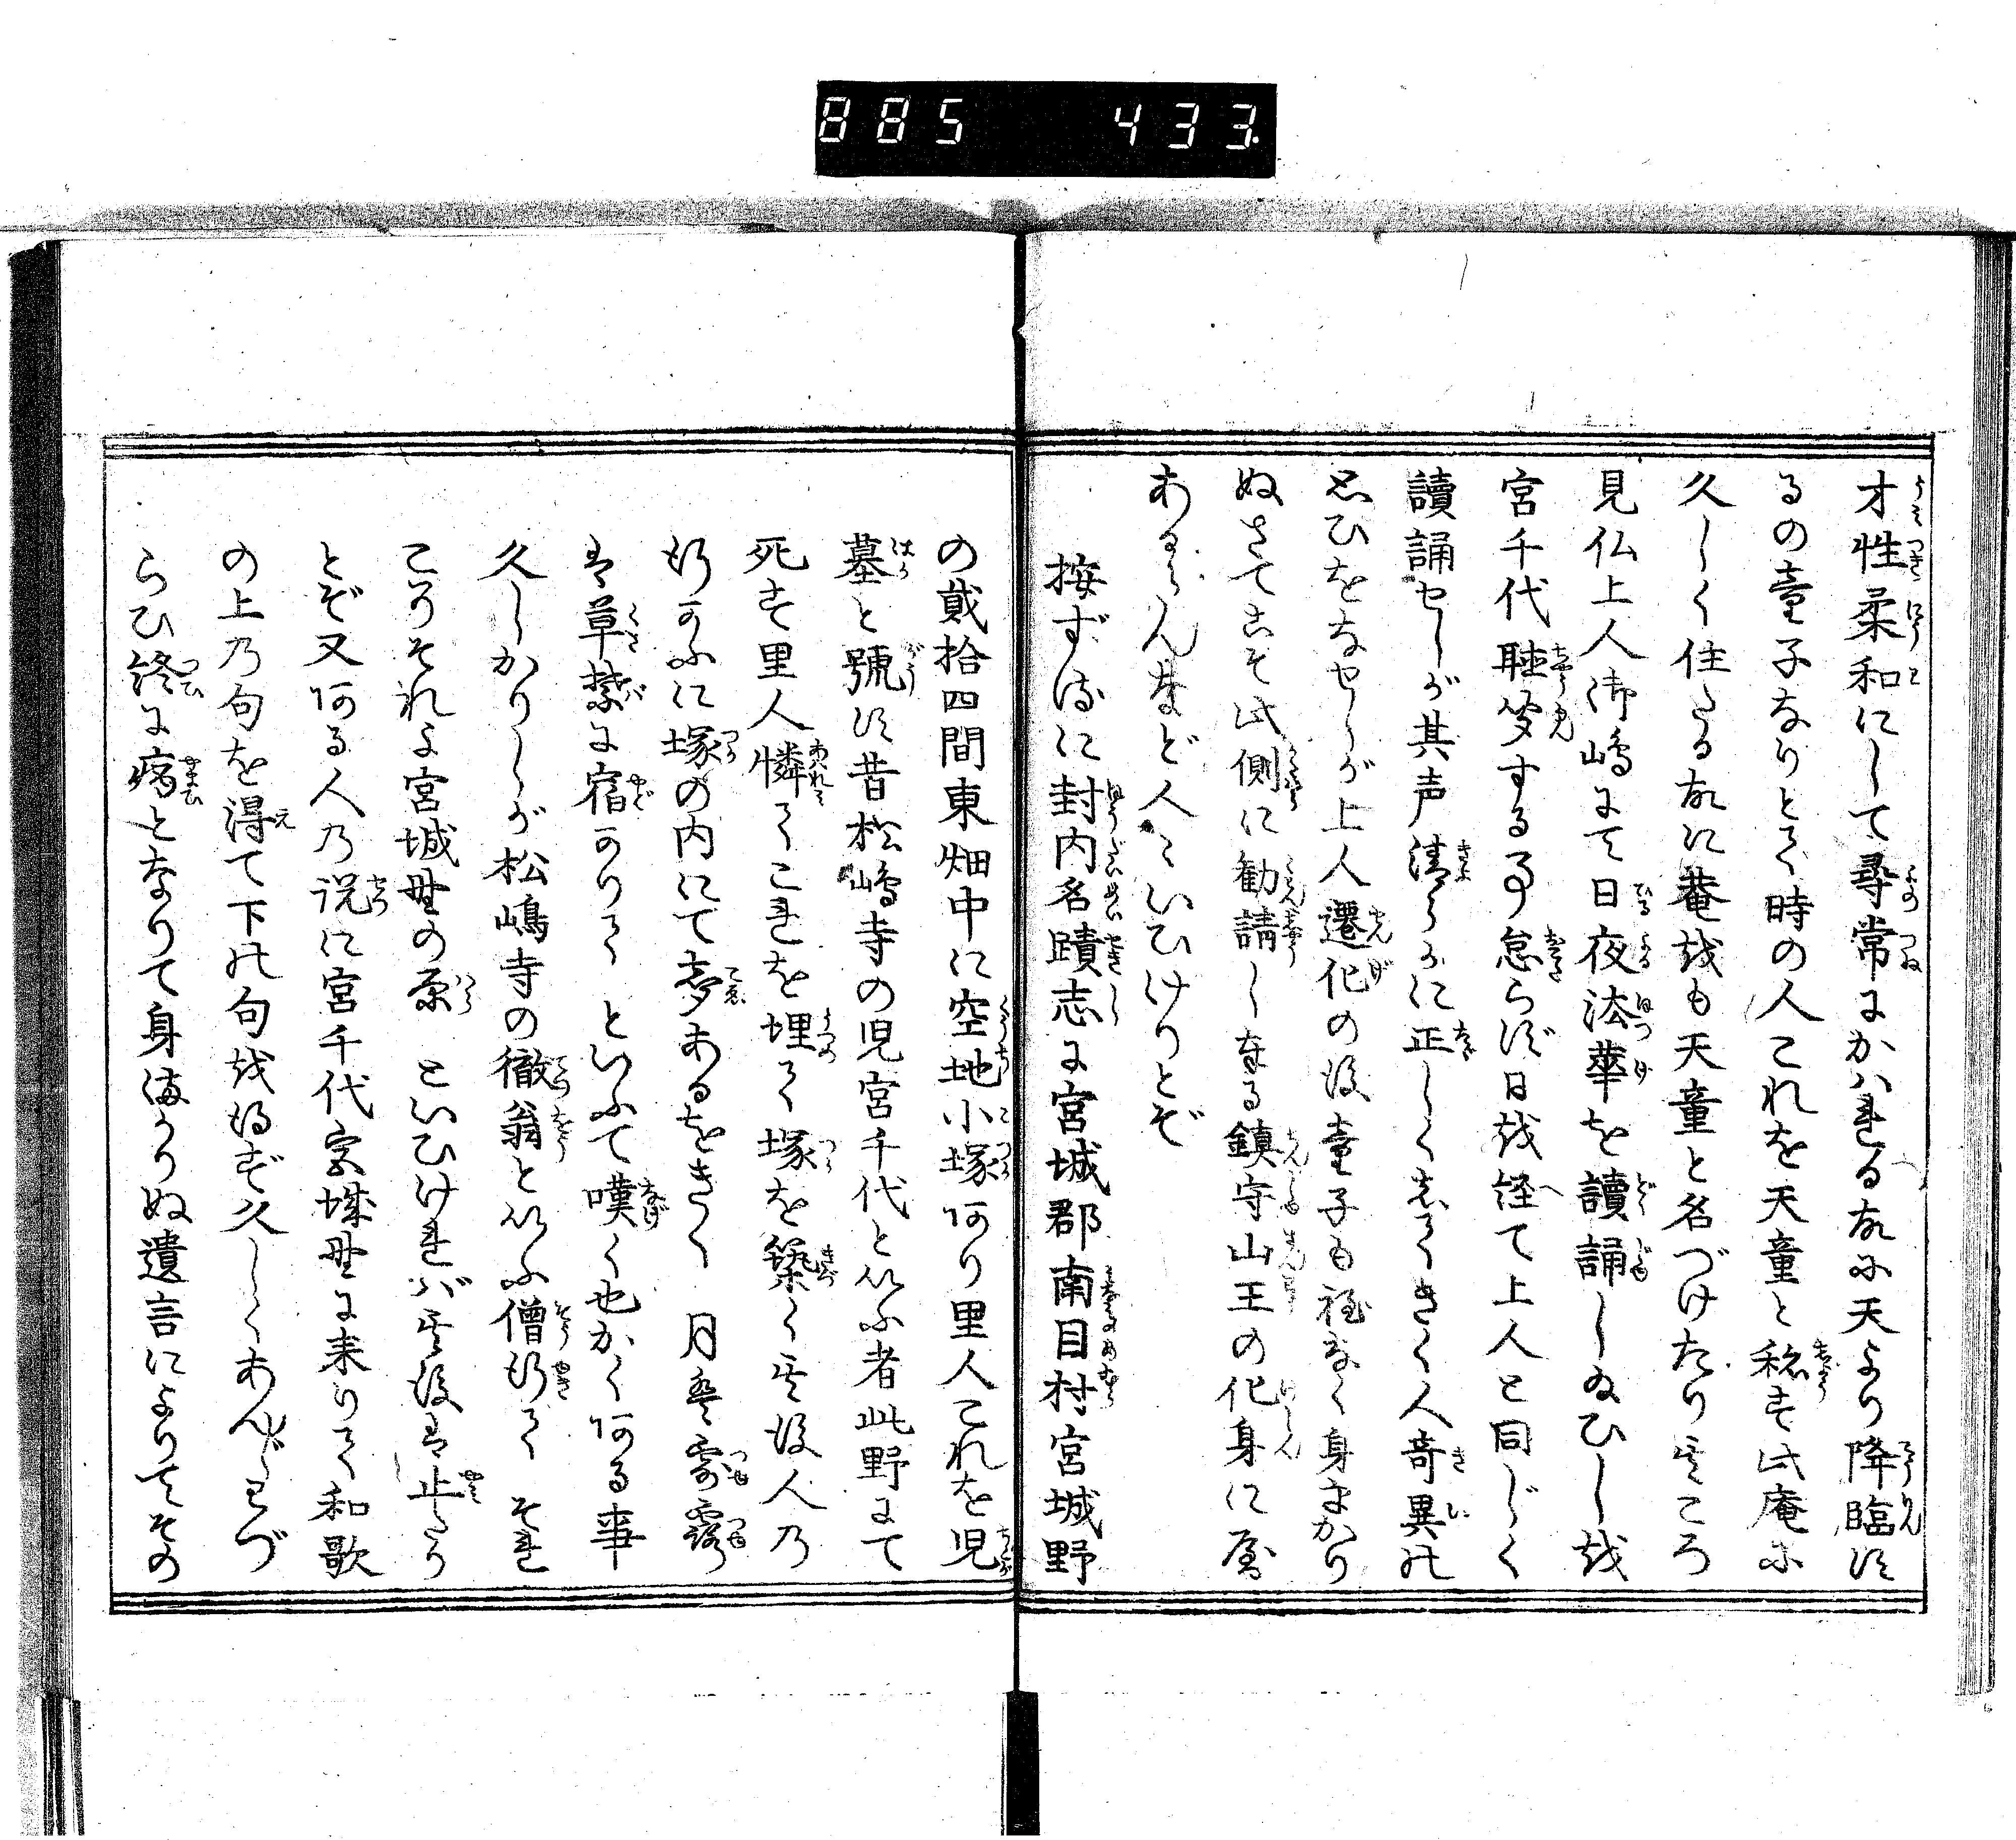 885 433
才性柔和にして尋常にかハれる故に天より降臨す
るの童子なりとて時の人これを天童と称す此庵に
久しく住たる故に菴をも天童と名づけたり其ころ
見仏上人御嶋にて日夜法華を讀誦しゐひしを
宮千代聴聞する事怠らず日を経て上人と同じく
讀誦せしが其声清らかに正しくしてきく人奇異の
思ひをなせしが上人遷化の後童子も程なく身まかり
ぬさてこそ此側に勧請しなる鎮守山王の化身に
あるらんなど人々いひけりとぞ
按ずるに封内名蹟志に宮城郡南目村宮城野
の貮拾四間東畑中に空地小塚あり里人これを児
墓と號す昔松嶋寺の児宮千代といふ者此野にて
死す里人憐てこれを埋て塚を築く其後人の
行かふに塚の内にて声あるをきく 月は露つゆ
は草葉に宿かりて といふて嘆く也かくある事
久しかりしが松嶋寺の徹翁といふ僧行て それ
こそそれよ宮城野の原 といひけれバ其後は止たり
とぞ又ある人の説に宮千代宮城野に来りて和歌
の上の句を得て下の句を得ず久しくあんじわづ
らひ終に病となりて身まかりぬ遺言によりてその